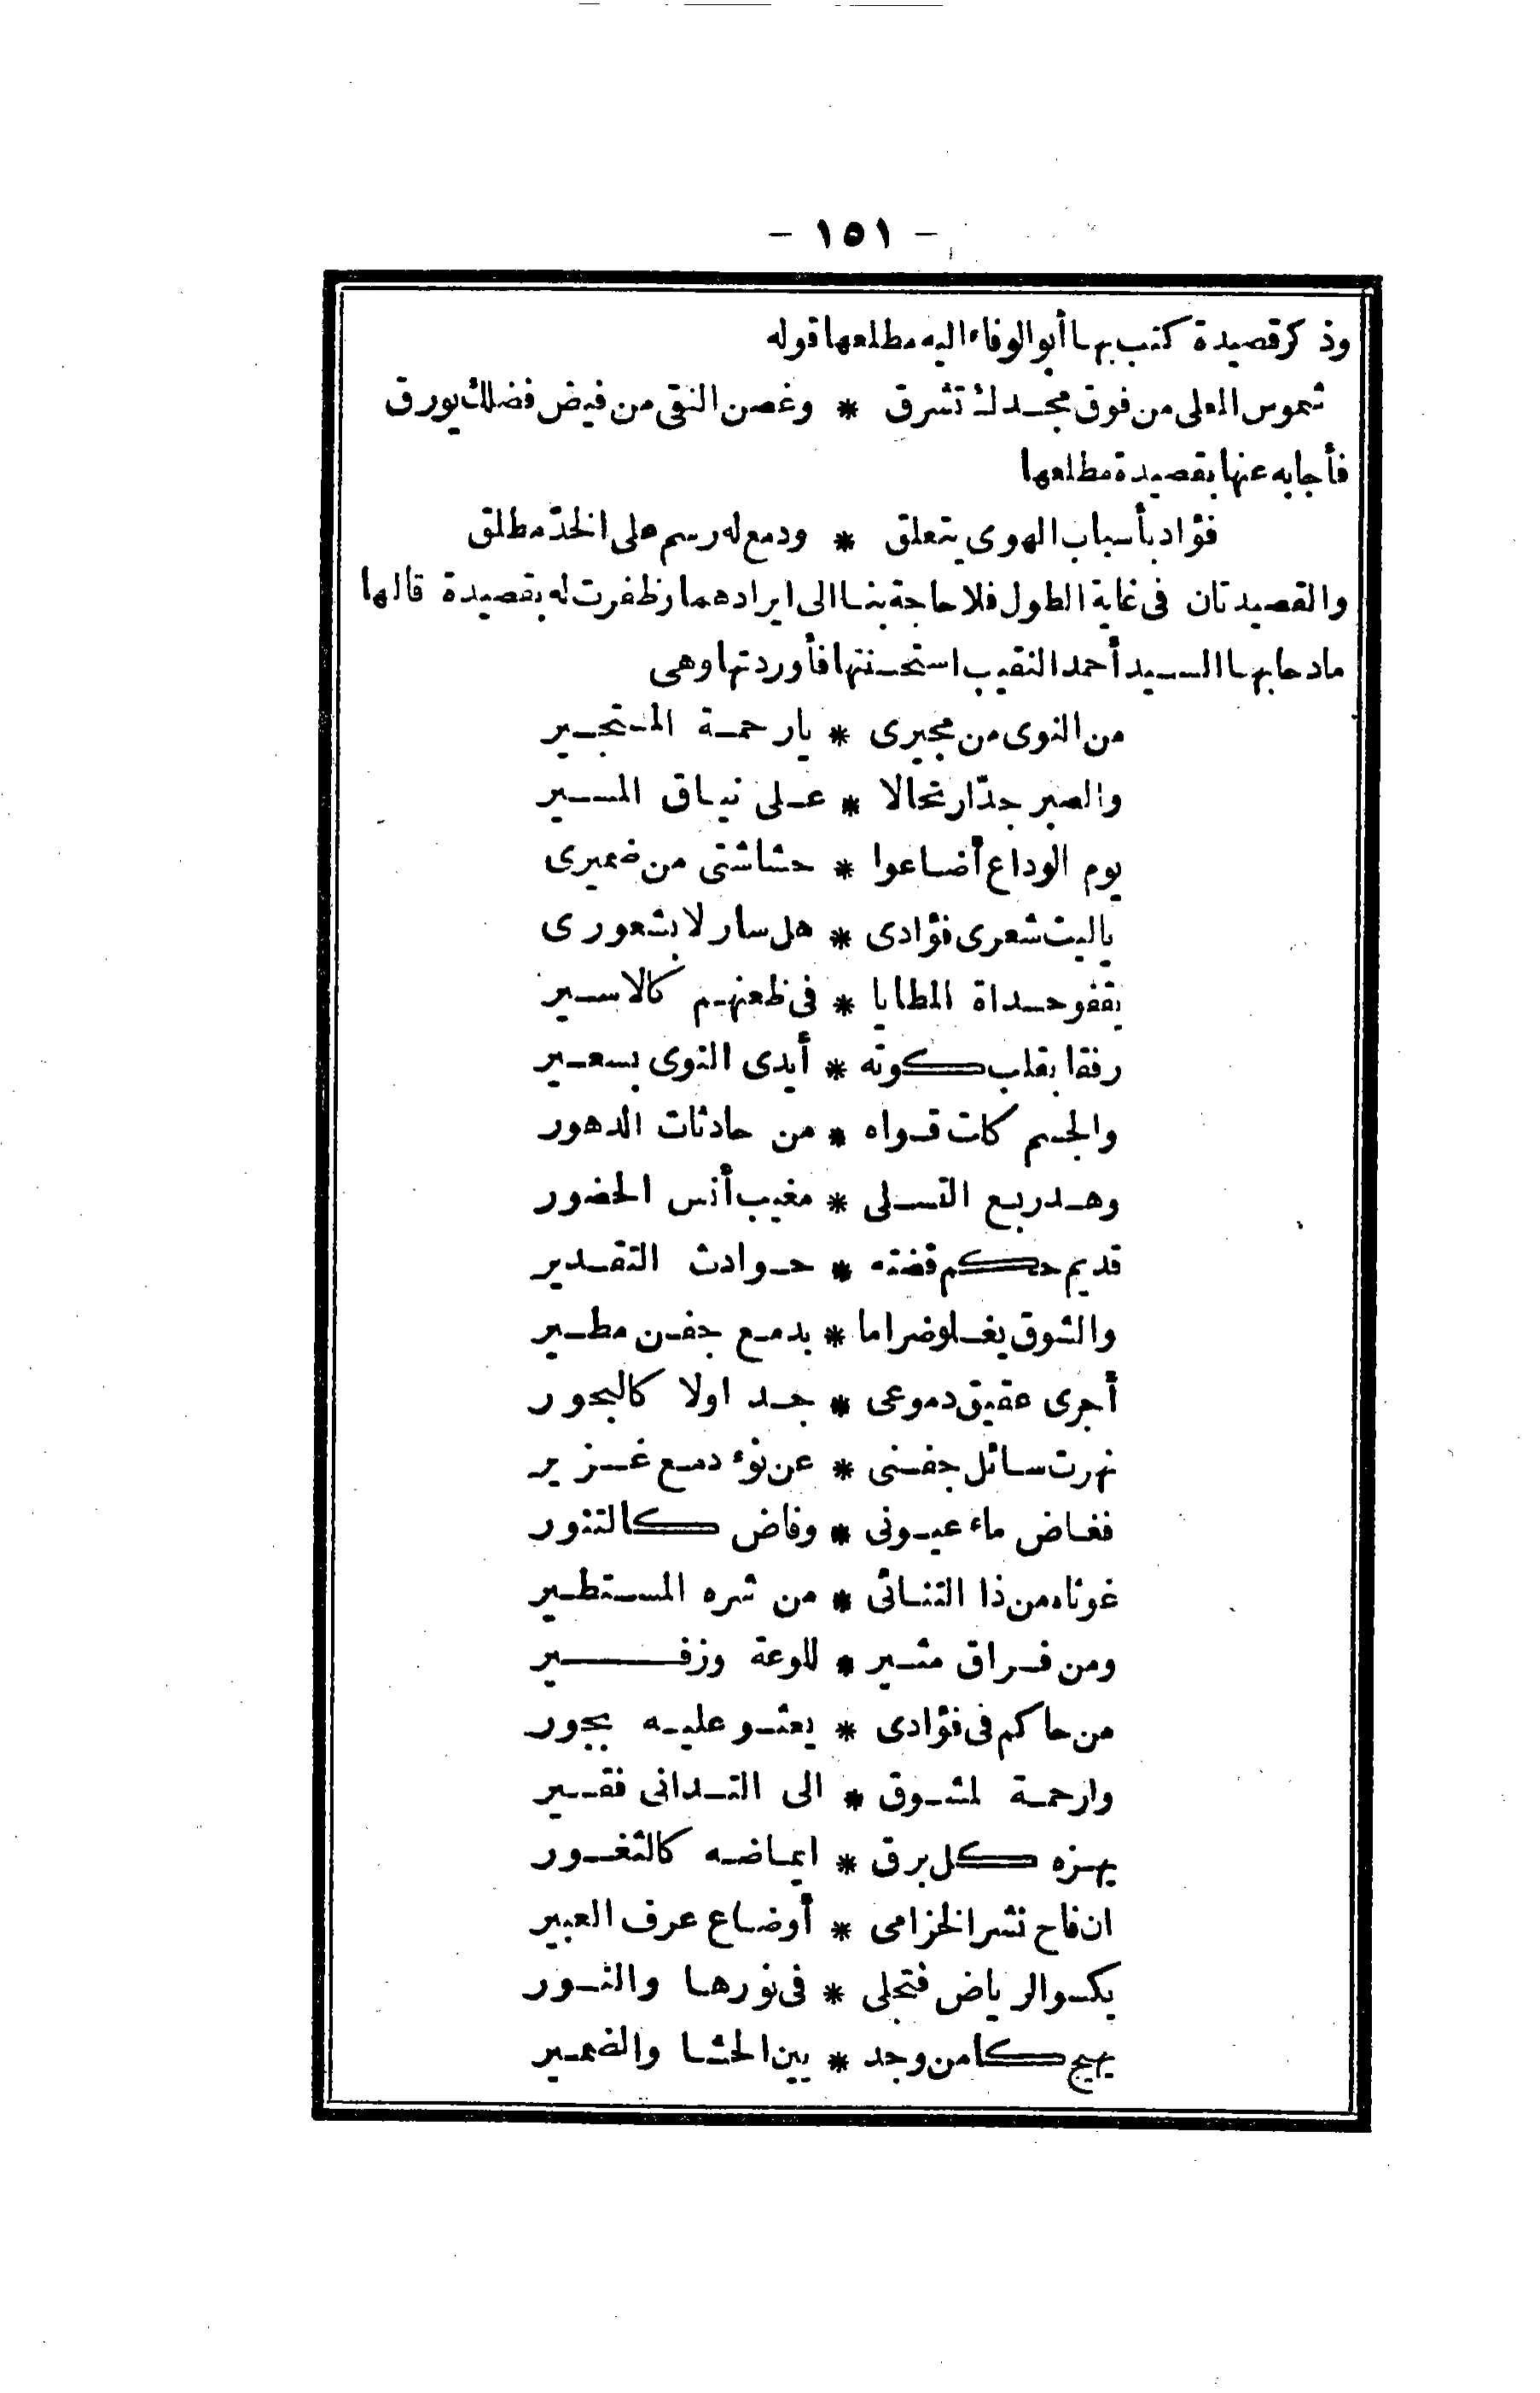 - ١٥١ -
وذكر قصيدة كتب بها أبو الوفاء اليه مطلعها قوله
شموس العلى من فوق مجدك تشرق * وغصن النقى من فيض فضلك يورق
فأجابه عنها بقصيدة مطلعها
فؤاد بأسباب الهوى يتعلق * ودمع له رسم على الخد مطلق
والقصيدتان فى غاية الطول فلا حاجة بنا الى ايرادهما وظفرت له بقصيدة قالها
مادحا بها السيد أحمد النقيب استحسنتها فأوردتها وهى
من النوى من مجيرى * يارحمة المستجير
والصبر جدّ ارتحالا * على نياق المسير
يوم الوداع أضاعوا * حشاشتى من ضميرى
ياليت شعرى فؤادى * هل سار لا بشعورى
يقفو حداة المطايا * فى ظعنهم كالاسير
رفقا بقلب كوته * أيدى النوى بسعير
والجسم كلت قواه * من حادثات الدهور
وهد ربع التسلى * مغيب أنس الحضور
قديم حكم قضته * حوادث التقدير
والشوق يغلو ضراما * بدمع جفن مطير
أجرى عقيق دموعى * جداولا كالبحور
نهرت سائل جفنى * عن نوء دمع غزير
فغاض ماء عيونى * وفاض كالتنور
غوثاه من ذا التنائى * من شره المستطير
ومن فراق مثير * للوعة وزفير
من حاكم فى فؤادى * يعثو عليه بجور
وارحمة لمشوق * الى التدانى فقير
يهزه كل برق * ايماضه كالثغور
ان فاح نشر الخزامى * أوضاع عرف العبير
يكسو الرياض فتجلى * فى نورها والنور
يهيج كامن وجد * بين الحشا والضمير